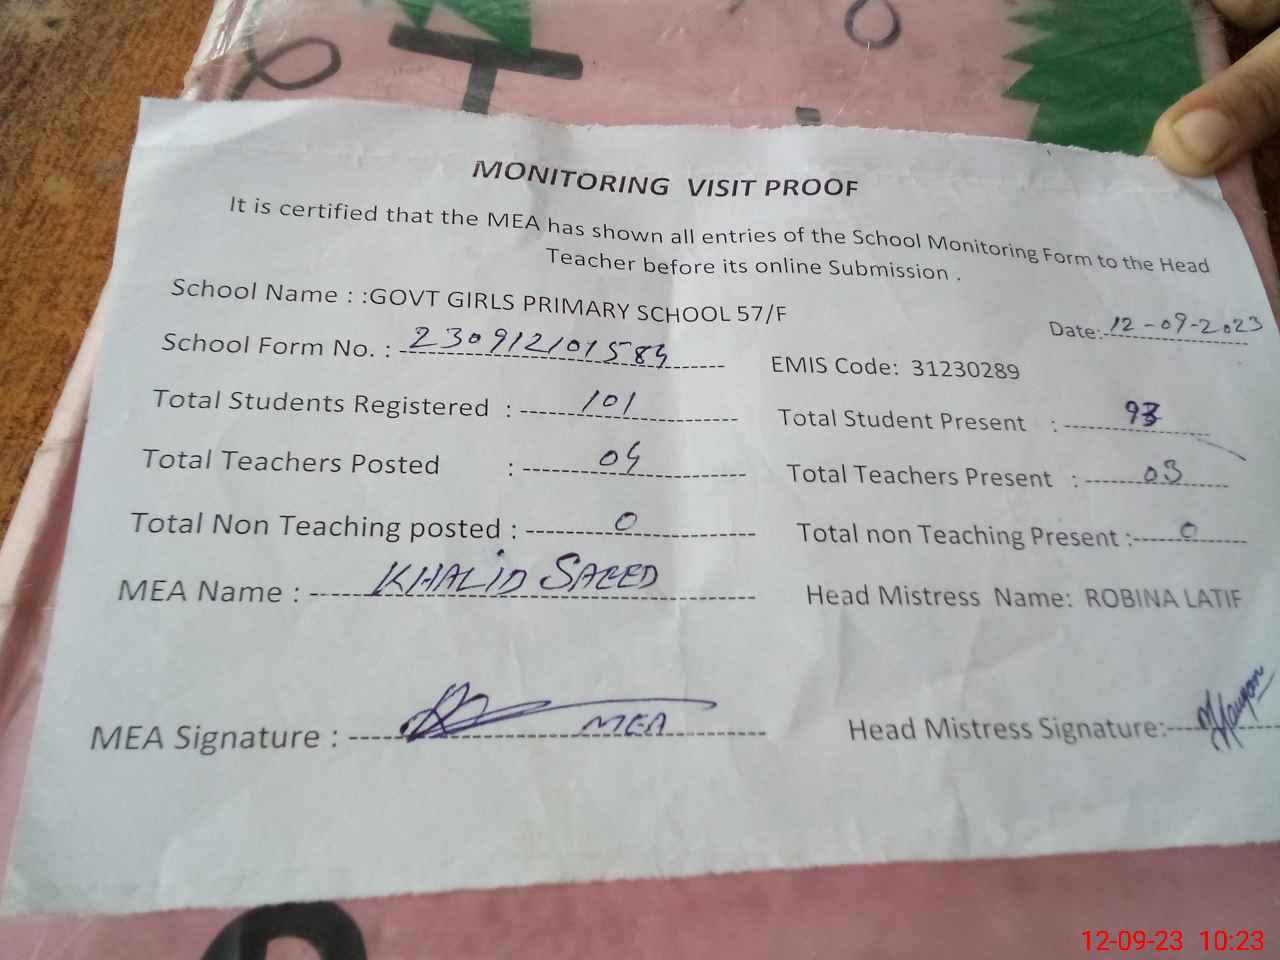 MONITORING VISIT PROOF
It is certified that the MEA has shown all entries of the School Monitoring Form to the Head
Teacher before its online Submission .
School Name : :GOVT GIRLS PRIMARY SCHOOL 57/F
Date: 12-09-2023
School Form No. : 230912101584
EMIS Code: 31230289
Total Students Registered : 101
Total Student Present : 93
Total Teachers Posted : 04
Total Teachers Present : 03
Total Non Teaching posted : 0
Total non Teaching Present : 0
MEA Name : KHALID SAEED
Head Mistress Name: ROBINA LATIF
MEA Signature : MEA
Head Mistress Signature:
12-09-23 10:23